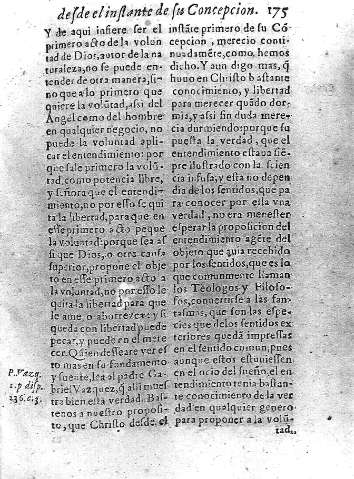 desde el instante de su Concepcion. 175
Y de aqui infiere ser el
primero acto de la volun
tad de Dios, autor de la na
turaleza, no se puede en-
tender de otra manera, si-
no que a lo primero que
quiere la volũtad, assi del
Angel como del hombre
en qualquier negocio, no
puede la voluntad apli-
car el entendimiento: por
que sale primero la volũ-
tad, como potencia libre,
y señora que el entendi-
miento, no por esso se qui
ta la libertad, para que en
esse primero acto peque
la voluntad: porque sea as
si que Dios, o otra causa
superior, propone el obje
to en esse primero acto a
la voluntad, no por esso le
quita la libertad para que
le ame o aborrezca: y si
queda con libertad puede
pecar, y puede en el mere
cer. Quien desseare ver es
to mas en su fundamento
y fuente, lea al padre Ga-
briel Vazquez, q̃ alli mues
tra bien esta verdad. Bas-
tenos a nuestro proposi-
to, que Christo desde el
P. Vazq.
1. p. disp.
236. c. 3.
instãte primero de su Cõ
cepcion, merecio conti-
nuadamẽte, como, hemos
dicho. Y aun digo mas, q̃
huuo en Christo bastante
conocimiento, y libertad
para merecer quãdo dor-
mia, y assi sin duda mere-
cia durmiendo: porque su
puesta la verdad, que el
entendimiento estaua siẽ-
pre ilustrado con la scien
cia infusa, y esta no depen
dia de los sentidos, que pa
ra conocer por ella vna
verdad, no era menester
esperar la proposicion del
entendimiento agẽte del
objeto que auia recebido
por los sentidos, que es lo
que comunmente llaman
los Teologos y Filoso-
fos, conuertirse a las fan-
tasmas, que son las espe-
cies que de los sentidos ex
teriores quedã impressas
en el sentido comun, pues
aunque estos estuuiessen
en el ocio del sueño, el en
tendimiento tenia bastan-
te conocimiento de la ver
dad en qualquier genero
para proponer a la volũ-
tad,